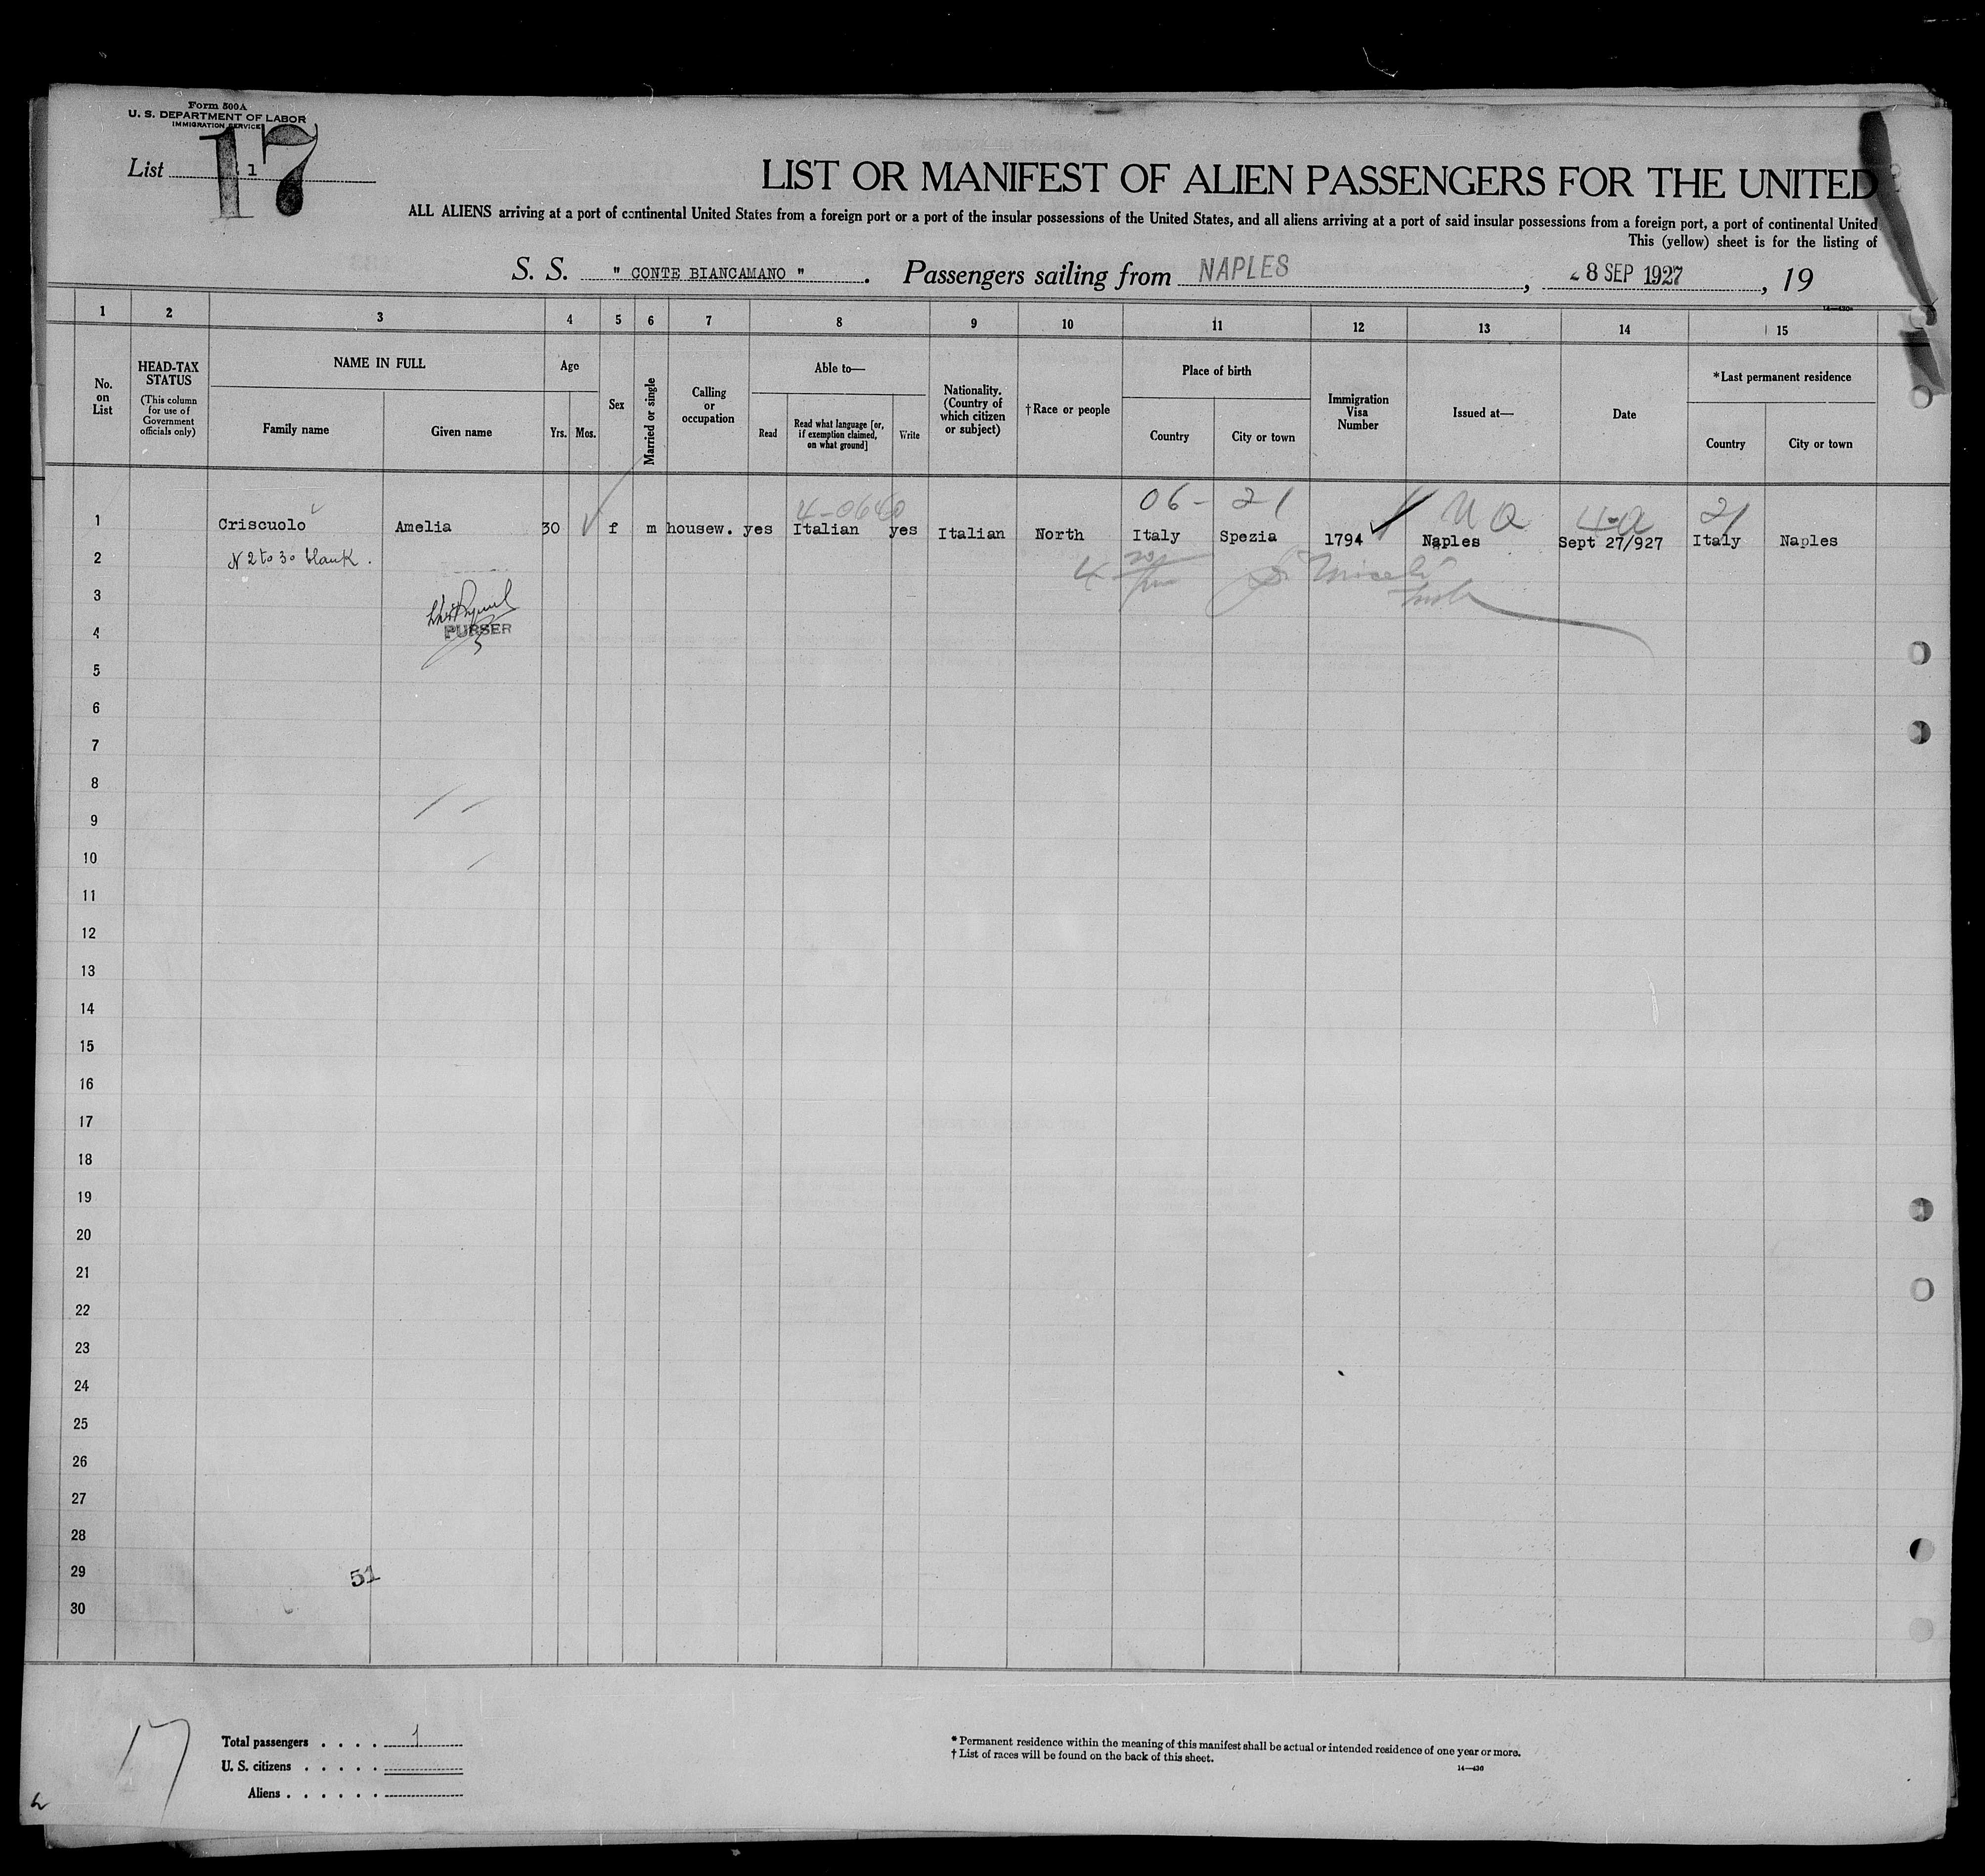 Form 500A
U. S. DEPARTMENT OF LABOR
IMMIGRATION SERVICE
List 1
17
LIST OR MANIFEST OF ALIEN PASSENGERS FOR THE UNITED
ALL ALIENS arriving at a port of continental United States from a foreign port or a port of the insular possessions of the United States, and all aliens arriving at a port of said insular possessions from a foreign port, a port of continental United
This (yellow) sheet is for the listing of
S. S. " CONTE BIANCAMANO ". Passengers sailing from NAPLES, 28 SEP 1927, 19
14—430a
1 2 3 4 5 6 7 8 9 10 11 12 13 14 15
No. on List
HEAD-TAX STATUS
(This column for use of Government officials only)
NAME IN FULL
Family name
Given name
Age
Yrs.
Mos.
Sex
Married or single
Calling or occupation
Able to—
Read
Read what language [or, if exemption claimed, on what ground]
Write
Nationality. (Country of which citizen or subject)
†Race or people
Place of birth
Country
City or town
Immigration Visa Number
Issued at—
Date
*Last permanent residence
Country
City or town
06 - 21
21
1 Criscuolo Amelia 30 f m housew. yes Italian yes Italian North Italy Spezia 1794 Naples Sept 27/927 Italy Naples
2 N 2 to 30 blank.
3
4 PURSER
5
6
7
8
9
10
11
12
13
14
15
16
17
18
19
20
21
22
23
24
25
26
27
28
29
51
30
17
Total passengers . . . . 1
U. S. citizens . . . . .
Aliens . . . . . .
* Permanent residence within the meaning of this manifest shall be actual or intended residence of one year or more.
† List of races will be found on the back of this sheet.
14—430